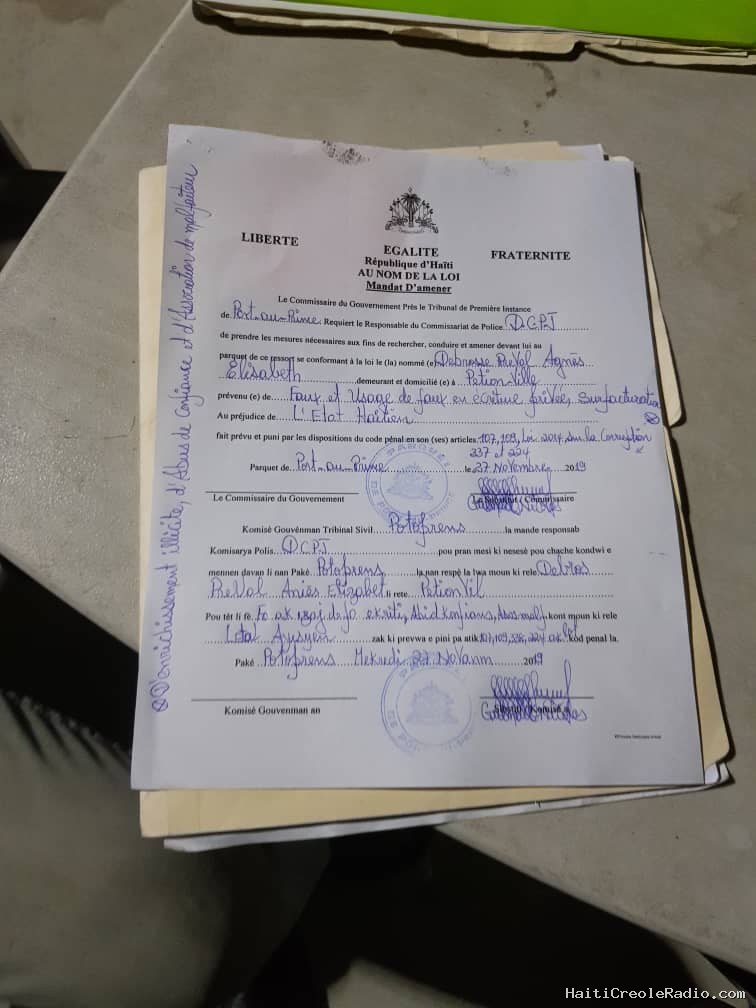 LIBERTE
EGALITE
FRATERNITE
République d'Haïti
AU NOM DE LA LOI
Mandat D'amener
Le Commissaire du Gouvernement Près le Tribunal de Première Instance
de Port-au-Prince Requiert le Responsable du Commissariat de Police DCPJ
de prendre les mesures nécessaires aux fins de rechercher, conduire et amener devant lui au
parquet de ce ressort se conformant à la loi le (la) nommé (e) Debrosse PreVal Agnès
Elisabeth demeurant et domicilié (e) à Petion Ville
prévenu (e) de Faux et Usage de faux en écriture privée, Surfacturation
Au préjudice de L'Etat Haïtien
fait prévu et puni par les dispositions du code pénal en son (ses) articles 107, 109, Loi 2014 sur la Corruption
337 et 224
Parquet de Port-au-Prince le 27 Novembre 2019
Le Commissaire du Gouvernement
Commissaire
Komisé Gouvènman Tribinal Sivil Potoprens la mande responsab
Komisarya Polis DCPJ pou pran mesi ki nesesé pou chache kondwi e
mennen davan li nan Paké Potoprens la nan respè la lwa moun ki rele Debros
PreVal Aniès Elizabet li rete PetionVil
Pou tèt li fè Fo ak izaj de fo ekriti, Abidkonfians, Asos malf kont moun ki rele
Leta Ayisyen zak ki prevwa e pini pa atik 107, 109, 336, 224 kòd penal la.
Paké Potoprens Mekredi 27 Novanm 2019
Komisé Gouvenman an
D'enrichissement illicite, d'Abus de Confiance et d'Association de malfaiteur
HaitiCreoleRadio.com